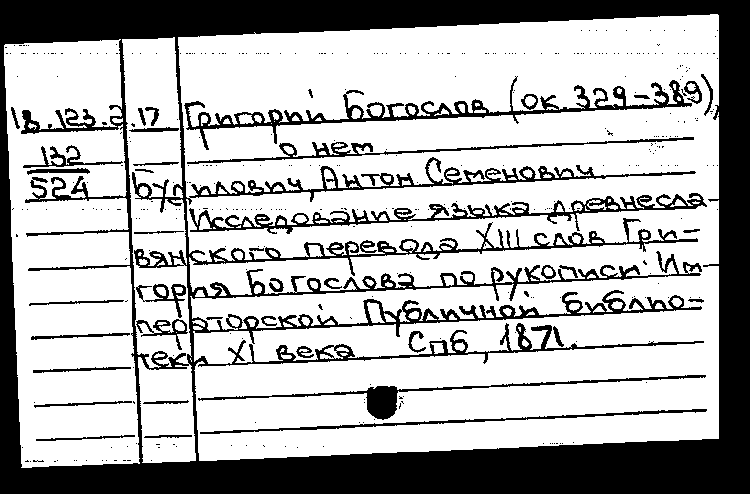 18.123.2.17 Григорий Богослов (ок. 329-389),
132 о нем
524 Будилович, Антон Семенович
Исследование языка древнесла-
вянского перевода XIII слов Гри-
гория Богослова по рукописи Им-
ператорской Публичной библио-
теки XI века СПб, 1871.